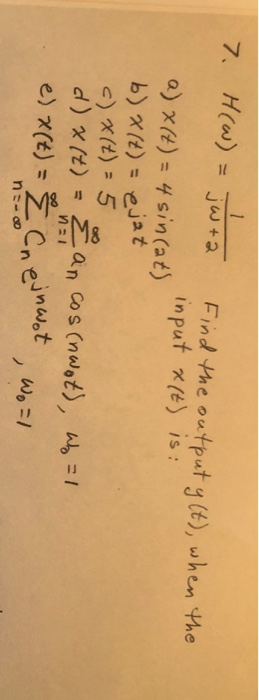 7. H(ω) = 1/(jω+2) Find the output y(t), when the
input x(t) is:
a) x(t) = 4 sin(2t)
b) x(t) = e^{j2t}
c) x(t) = 5
d) x(t) = ∑_{n=1}^{∞} a_n cos(nω₀t), ω₀ = 1
e) x(t) = ∑_{n=-∞}^{∞} C_n e^{jnω₀t}, ω₀ = 1